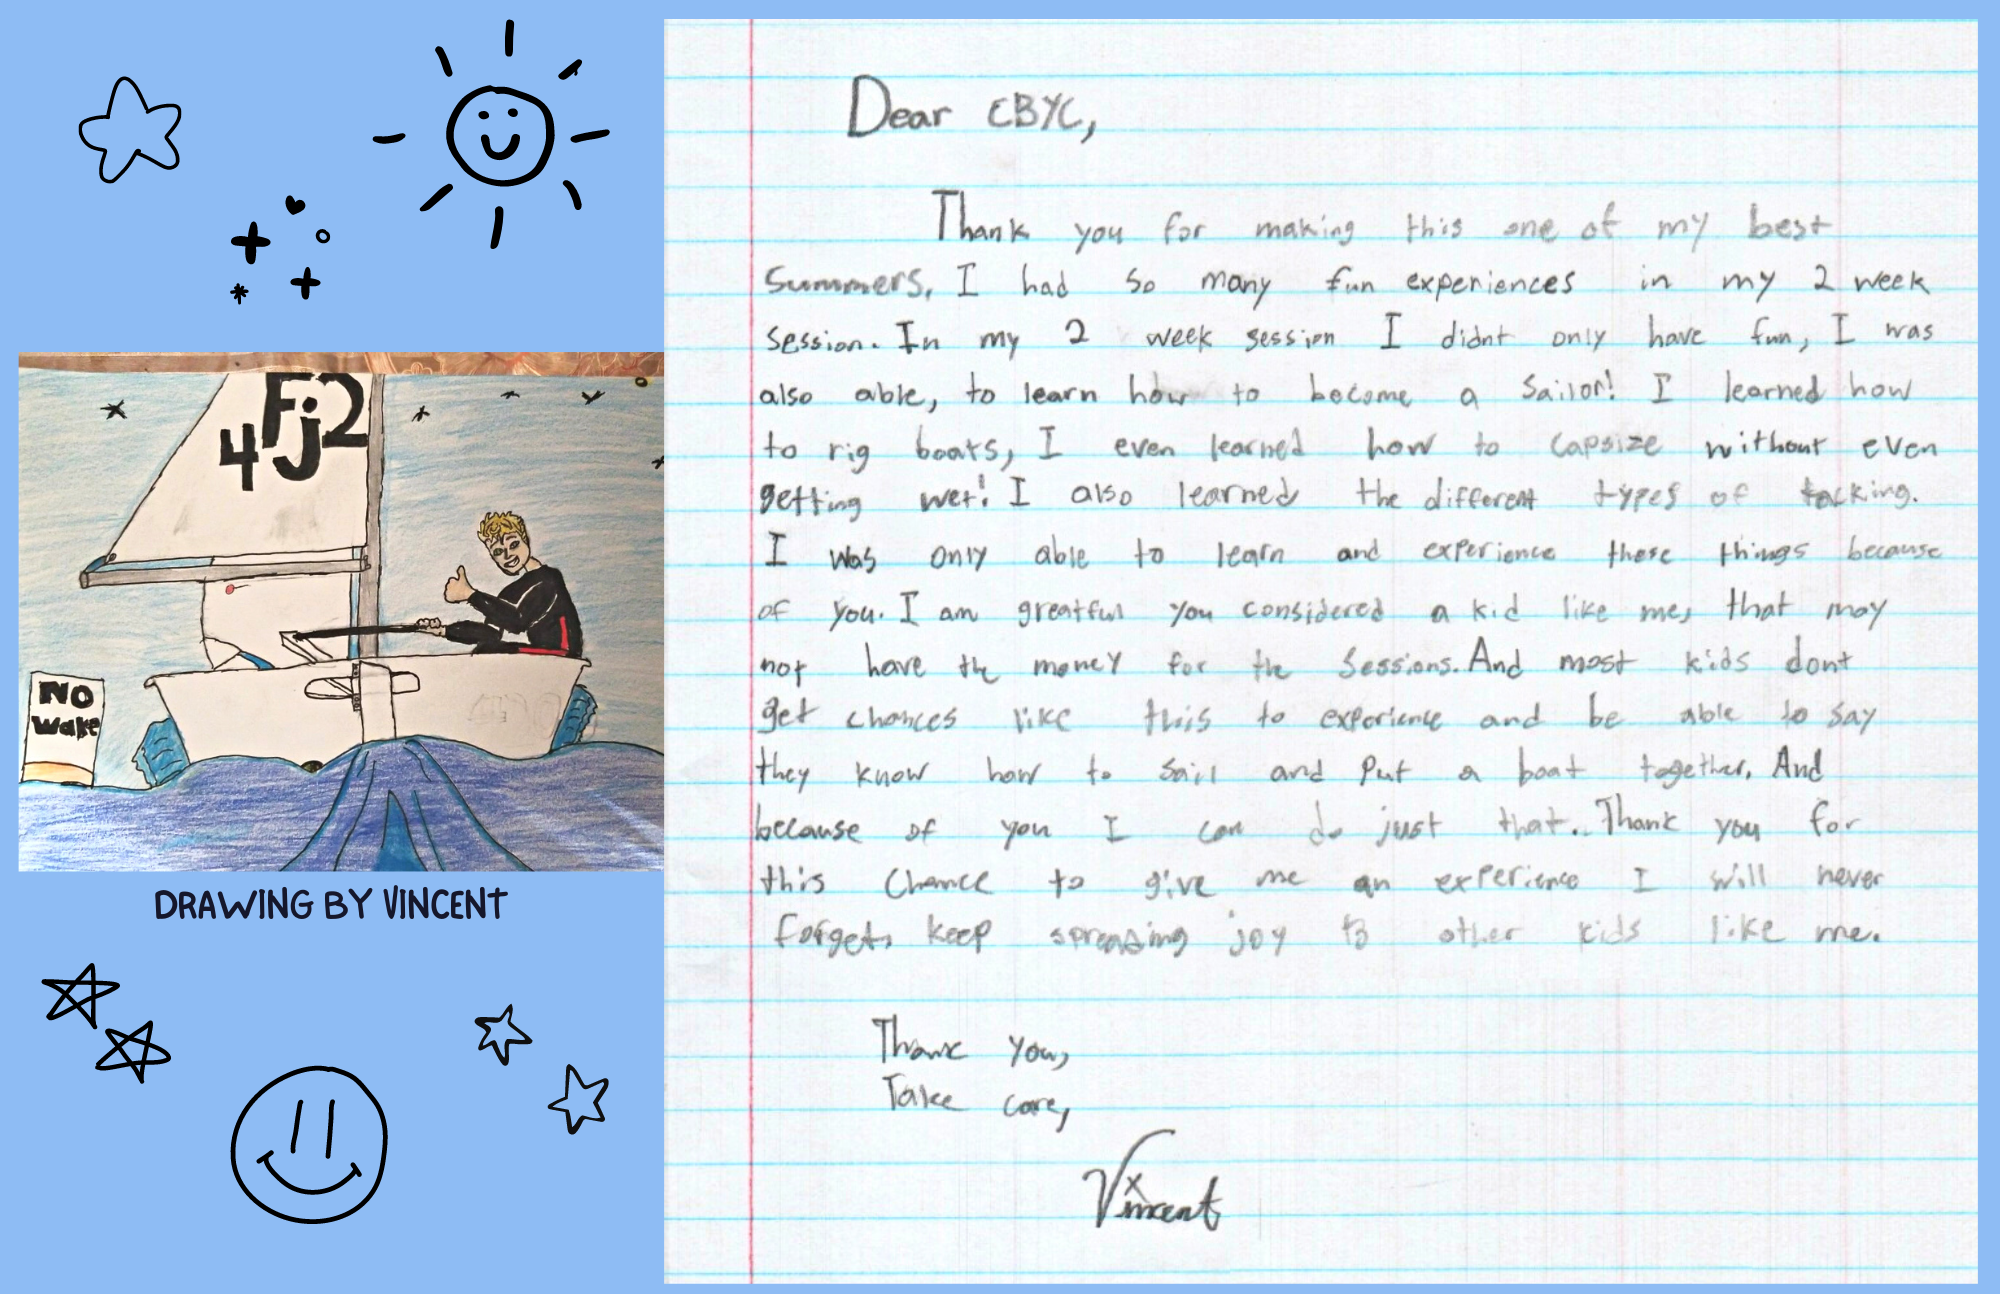 Dear CBYC,
Thank you for making this one of my best
summers. I had so many fun experiences in my 2 week
session. In my 2 week session I didnt only have fun, I was
also able, to learn how to become a sailor! I learned how
to rig boats, I even learned how to capsize without even
getting wet! I also learned the different types of tacking.
I was only able to learn and experience these things because
of you. I am greatful you considered a kid like me, that may
not have the money for the sessions. And most kids dont
get chances like this to experience and be able to say
they know how to sail and put a boat together. And
because of you I can do just that. Thank you for
this chance to give me an experience I will never
forget, keep spreading joy to other kids like me.
Thank you,
Take care,
Vincent
4Fj2
NO
Wake
DRAWING BY VINCENT